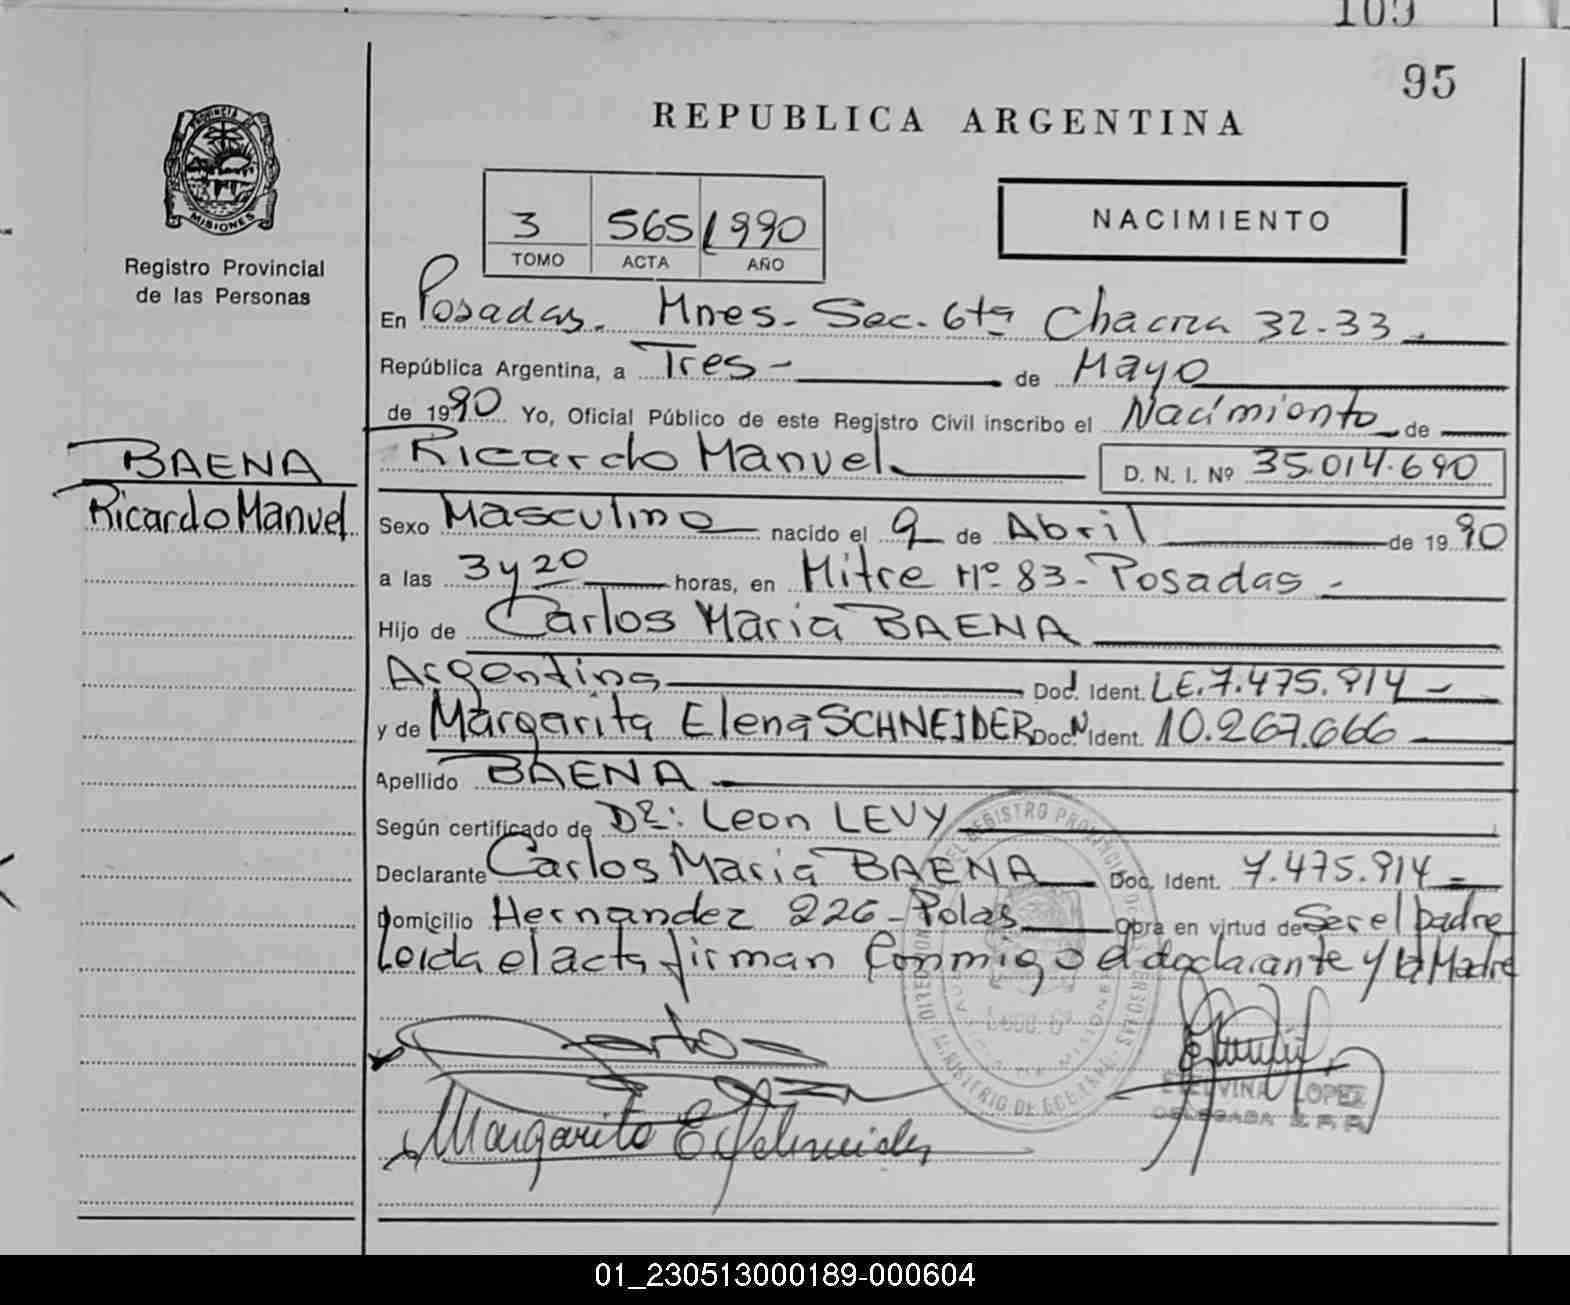 109
95
REPUBLICA ARGENTINA
PROVINCIA DE MISIONES
Registro Provincial
de las Personas
3 565 1990
TOMO ACTA AÑO
NACIMIENTO
En Posadas. Mnes- Sec. 6ta Chacra 32-33.
República Argentina, a Tres- de Mayo
de 1990 Yo, Oficial Público de este Registro Civil inscribo el Nacimiento de
Ricardo Manuel. D. N. I. Nº 35.014.690
BAENA
Ricardo Manuel
Sexo Masculino nacido el 9 de Abril de 1990
a las 3 y 20 horas, en Mitre Nº 83- Posadas-
Hijo de Carlos Maria BAENA
Argentina Doc. Ident. LE. 7.475.914-
y de Margarita Elena SCHNEIDER Doc. Ident. 10.267.666
Apellido BAENA
Según certificado de Dr: Leon LEVY
Declarante Carlos Maria BAENA Doc. Ident. 7.475.914
Domicilio Hernandez 226- Pdas Obra en virtud de Ser el padre
Leida el acta firman Conmigo el declarante y la Madre
DIRECCION DEL REGISTRO PROVINCIAL DE LAS PERSONAS
MINISTERIO DE GOBIERNO
Carlos
Margarita E. Schneider
LOPEZ
DELEGADA
01_230513000189-000604